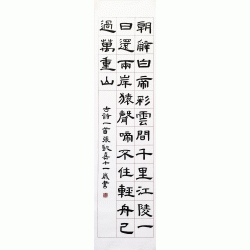 朝辭白帝彩雲間千里江陵一
日還兩岸猿聲啼不住輕舟已
過萬重山
古詩一首張十一歲書